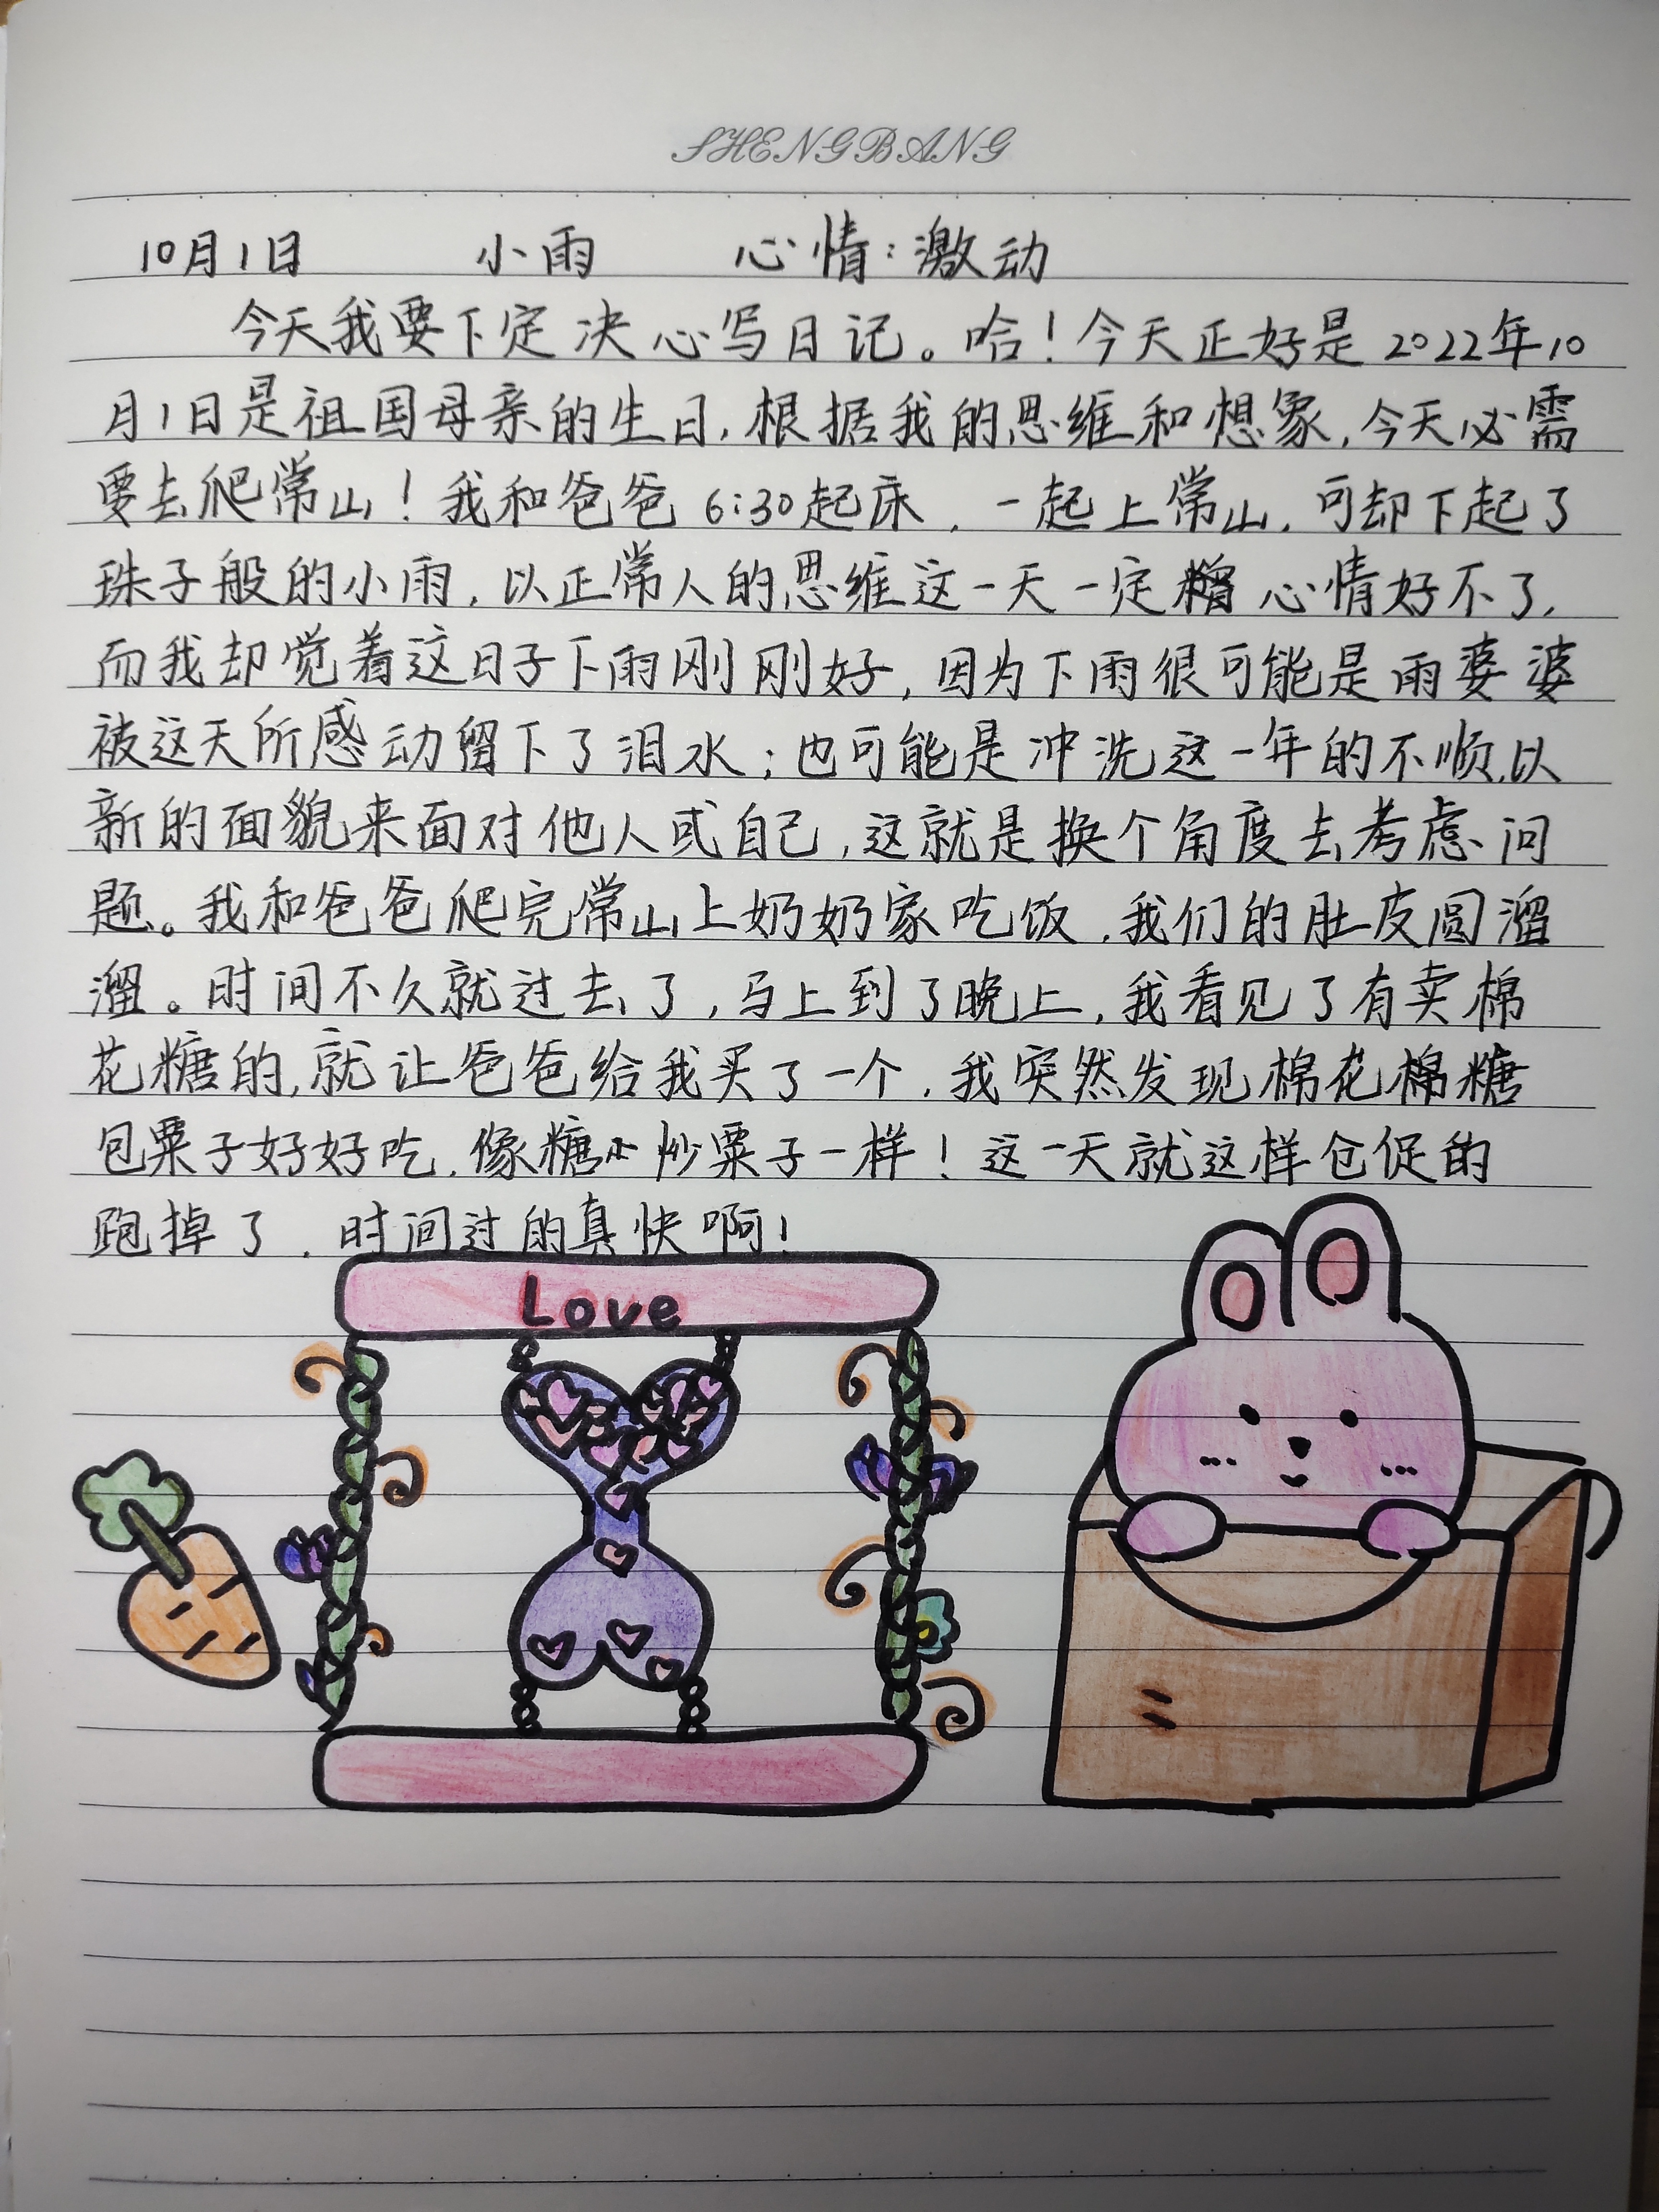 SHENGBANG
10月1日 小雨 心情:激动
今天我要下定决心写日记。哈!今天正好是2022年10
月1日是祖国母亲的生日,根据我的思维和想象,今天必需
要去爬常山!我和爸爸6:30起床,一起上常山,可却下起了
珠子般的小雨,以正常人的思维这一天一定心情好不了,
而我却觉着这日子下雨刚刚好,因为下雨很可能是雨婆婆
被这天所感动留下了泪水;也可能是冲洗这一年的不顺,以
新的面貌来面对他人或自己,这就是换个角度去考虑问
题。我和爸爸爬完常山上奶奶家吃饭,我们的肚皮圆溜
溜。时间不久就过去了,马上到了晚上,我看见了有卖棉
花糖的,就让爸爸给我买了一个,我突然发现棉花棉糖
包粟子好好吃,像糖小炒粟子一样!这一天就这样仓促的
跑掉了,时间过的真快啊!
Love